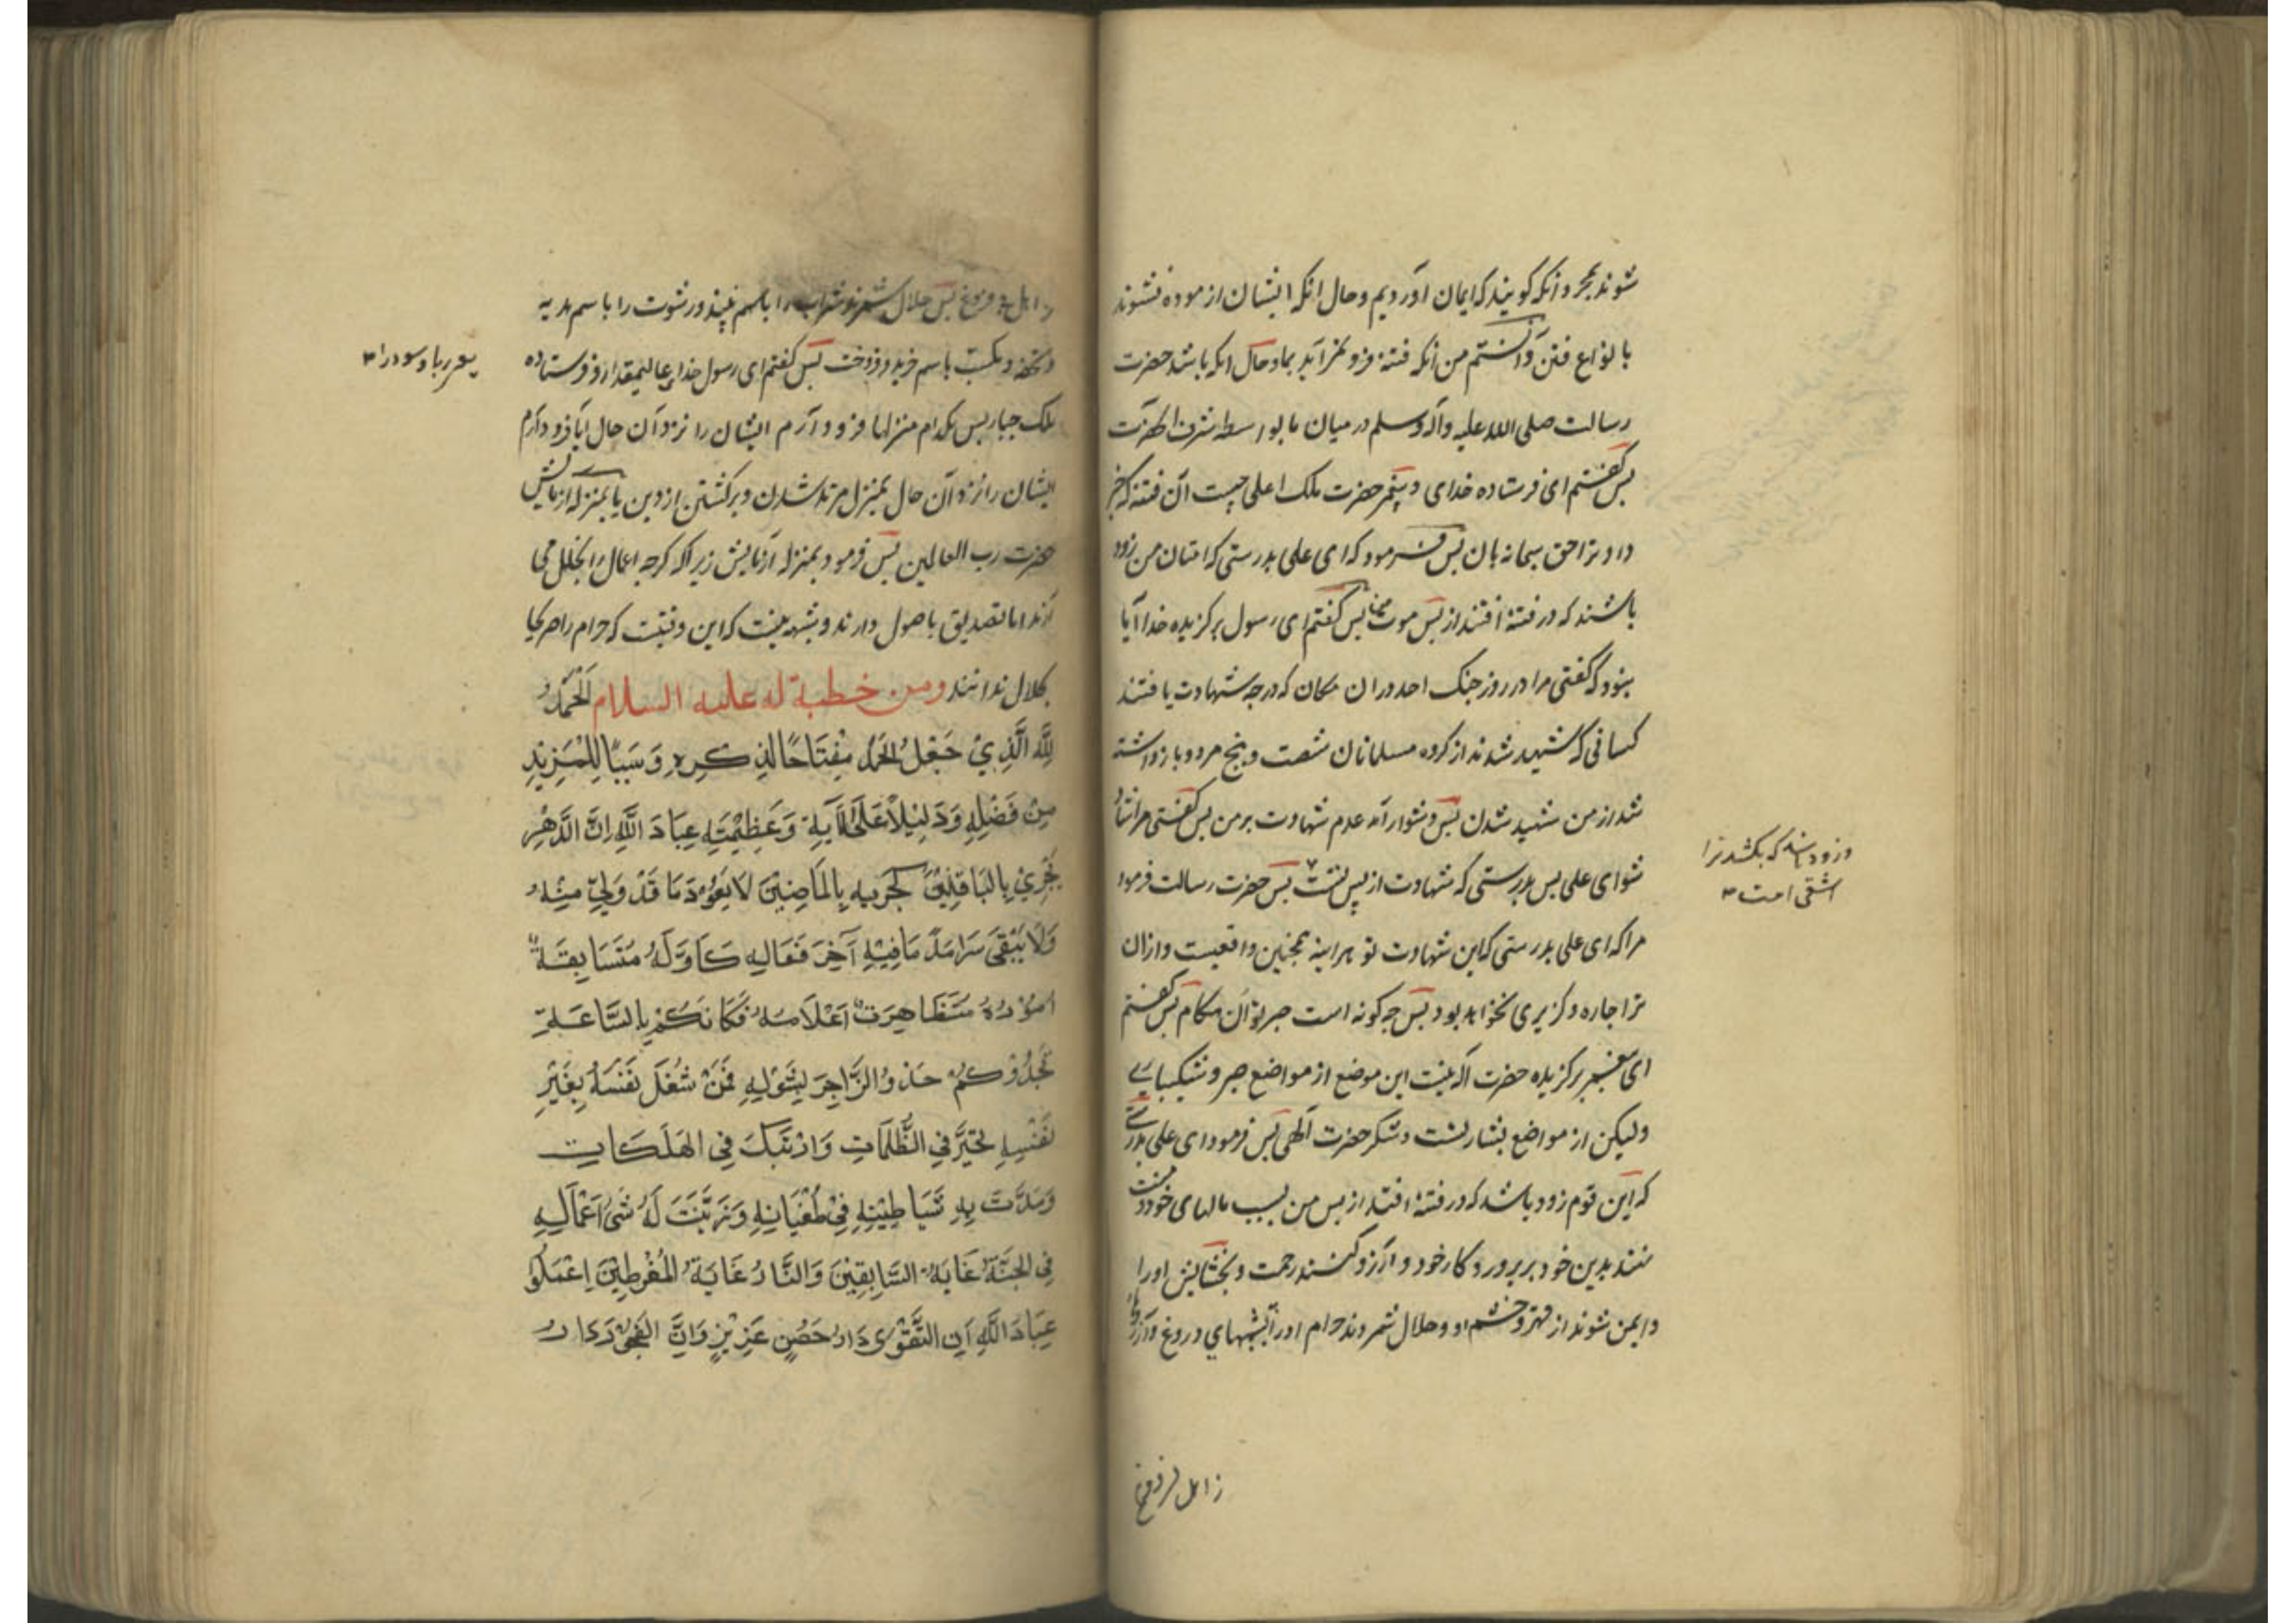 شوند بمجرد آنکه کویند که ایمان آوردیم و حال انکه ایشان ازموده نشوند
با نواع فتن و دانستم من آنکه فتنه فرو نمی آید بما و حال انکه باشد حضرت
رسالت صلی الله علیه وآله وسلم در میان ما بواسطه شرف آنحضرت
پس کفتم ای فرستاده خدای و پیغمبر حضرت ملک اعلی چیست آن فتنه که خبر
داد ترا حق سبحانه بان پس فرمود که ای علی بدرستی که امتان من زود
باشند که در فتنه افتند از پس موت من پس کفتم ای رسول برکزیده خدا آیا
نبود که کفتی مرا در روز جنک احد در ان مکان که درجه شهادت یافتند
کسانی که شهید شدند از کروه مسلمانان شصت و پنج مرد و بازداشته
شد از من شهید شدن پس دشوار آمد عدم شهادت بر من پس کفتی مرا شاد
شو ای علی پس بدرستی که شهادت از پس تست پس حضرت رسالت فرمود
وزود باشد که بکشد ترا
اشقی امت
مرا که ای علی بدرستی که این شهادت تو هراینه همچنین واقعیست وازان
ترا چاره و کزیری نخواهد بود پس چه کونه است صبر تو آن هنکام پس کفتم
ای پیغمبر برکزیده حضرت اله نیست این موضع از مواضع صبر و شکیبایی
ولیکن از مواضع بشارتست و شکر حضرت آلهی پس فرمود ای علی بدرستی
که این قوم زود باشد که در فتنه افتند از پس من بسبب مالهای خود و منت
نهند بدین خود بر پرورد کار خود و آرزو کنند رحمت و بخشایش او را
و ایمن شوند از قهر و خشم او و حلال شمردند حرام او را بشبههای دروغ و آرزوها
حلال شمرند شراب را باسم نبیذ و رشوت را باسم هدیه
و تحفه و باسم خرید و فروخت پس کفتم ای رسول خدای عالیمقدار و فرستاده
ملک جبار پس بکدام منزلها فرود آرم ایشان را نزد آن حال آیا فرود آرم
ایشان را نزد آن حال بمنزل مرتد شدن و برکشتن از دین یا بمنزله ازمایش
حضرت رب العالمین پس فرمود بمنزله آزمایش زیرا که کرچه اعمال را بخلل می
آرند اما تصدیق باصول دارند و شبهه نیست که این وقتیست که حرام را صریحا
حلال ندانند ومن خطبة له عليه السلام اَلْحَمْدُ
لِلَّهِ الَّذِيْ جَعَلَ الحَمْدَ مِفْتَاحًا لِذِكْرِهِ وَسَبَبًا لِلْمَزِيْدِ
مِنْ فَضْلِهِ وَدَلِيْلاً عَلَىٰ آلَآيِهِ وَعَظِيْمَتِهِ عِبَادَ اللَّهِ اِنَّ الدَّهْرَ
يَجْرِيْ بِالبَاقِيْنَ كَجَرْيِهِ بِالمَاضِيْنَ لَا يَعُوْدُ مَا قَدْ وَلَّى مِنْهُ
وَلَا يَبْقَى سَرْمَدًا مَا فِيْهِ آخِرُ فَعَالِهِ كَاَوَّلِهِ مُتَسَابِقَةٌ
اُمُوْرُهُ مُتَظَاهِرَةٌ اَعْلَامُهُ فَكَانَّكُمْ بِالسَّاعَةِ
تَحْدُوْكُمْ حَدْوَ الزَّاجِرِ بِشَوْلِهِ فَمَنْ شَغَلَ نَفْسَهُ بِغَيْرِ
نَفْسِهِ تَحَيَّرَ فِي الظُّلُمَاتِ وَارْتَبَكَ فِي الهَلَكَاتِ
وَمَدَّتْ بِهِ شَيَاطِيْنُهُ فِيْ طُغْيَانِهِ وَزَيَّنَتْ لَهُ سَيِّئَ اَعْمَالِهِ
فِي الجَنَّةُ غَايَةُ السَّابِقِيْنَ وَالنَّارُ غَايَةُ المُفْرِطِيْنَ اِعْمَلُوْا
عِبَادَ اللَّهِ اَنَّ التَّقْوٰى دَارُ حِصْنٍ عَزِيْزٍ وَاَنَّ الفُجُوْرَ دَارُ